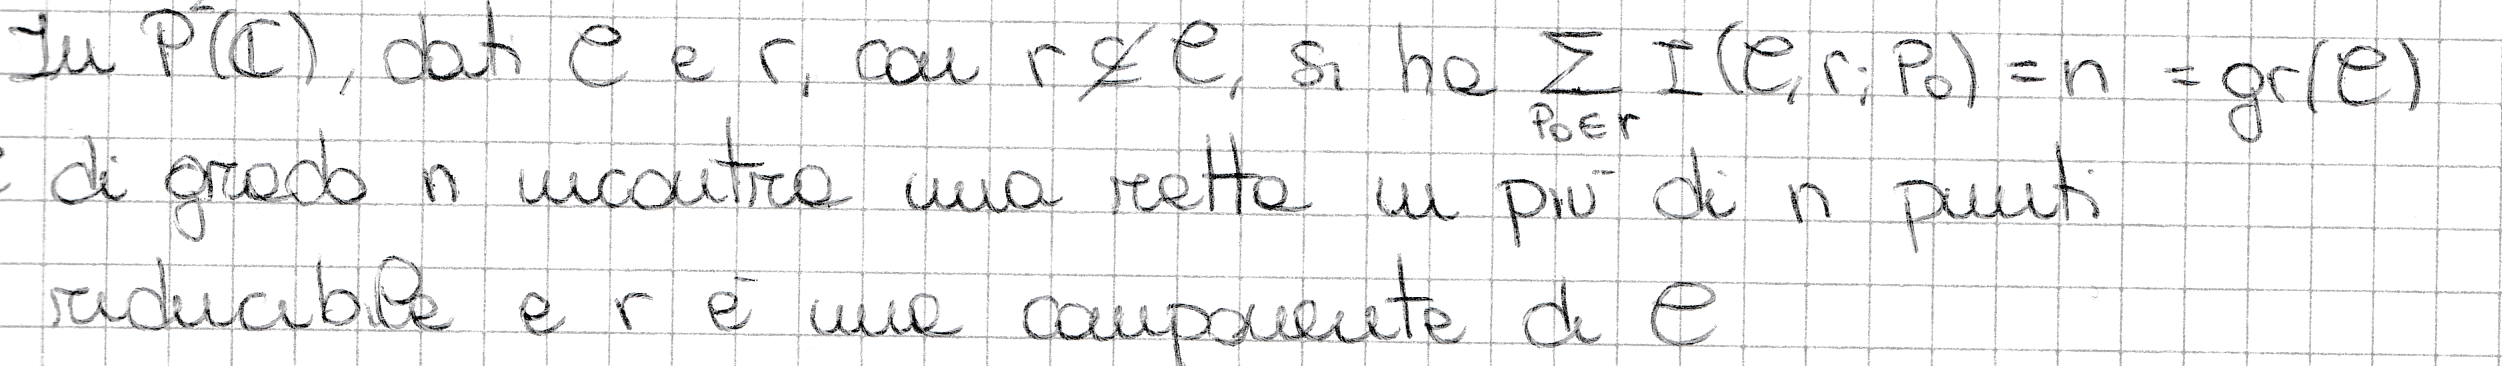 In P²(ℂ), dati C e r, con r ⊄ C, si ha ∑_{P₀∈r} I(C, r; P₀) = n = gr(C)
di grado n incontra una retta in più di n punti
riducibile e r è una componente di C